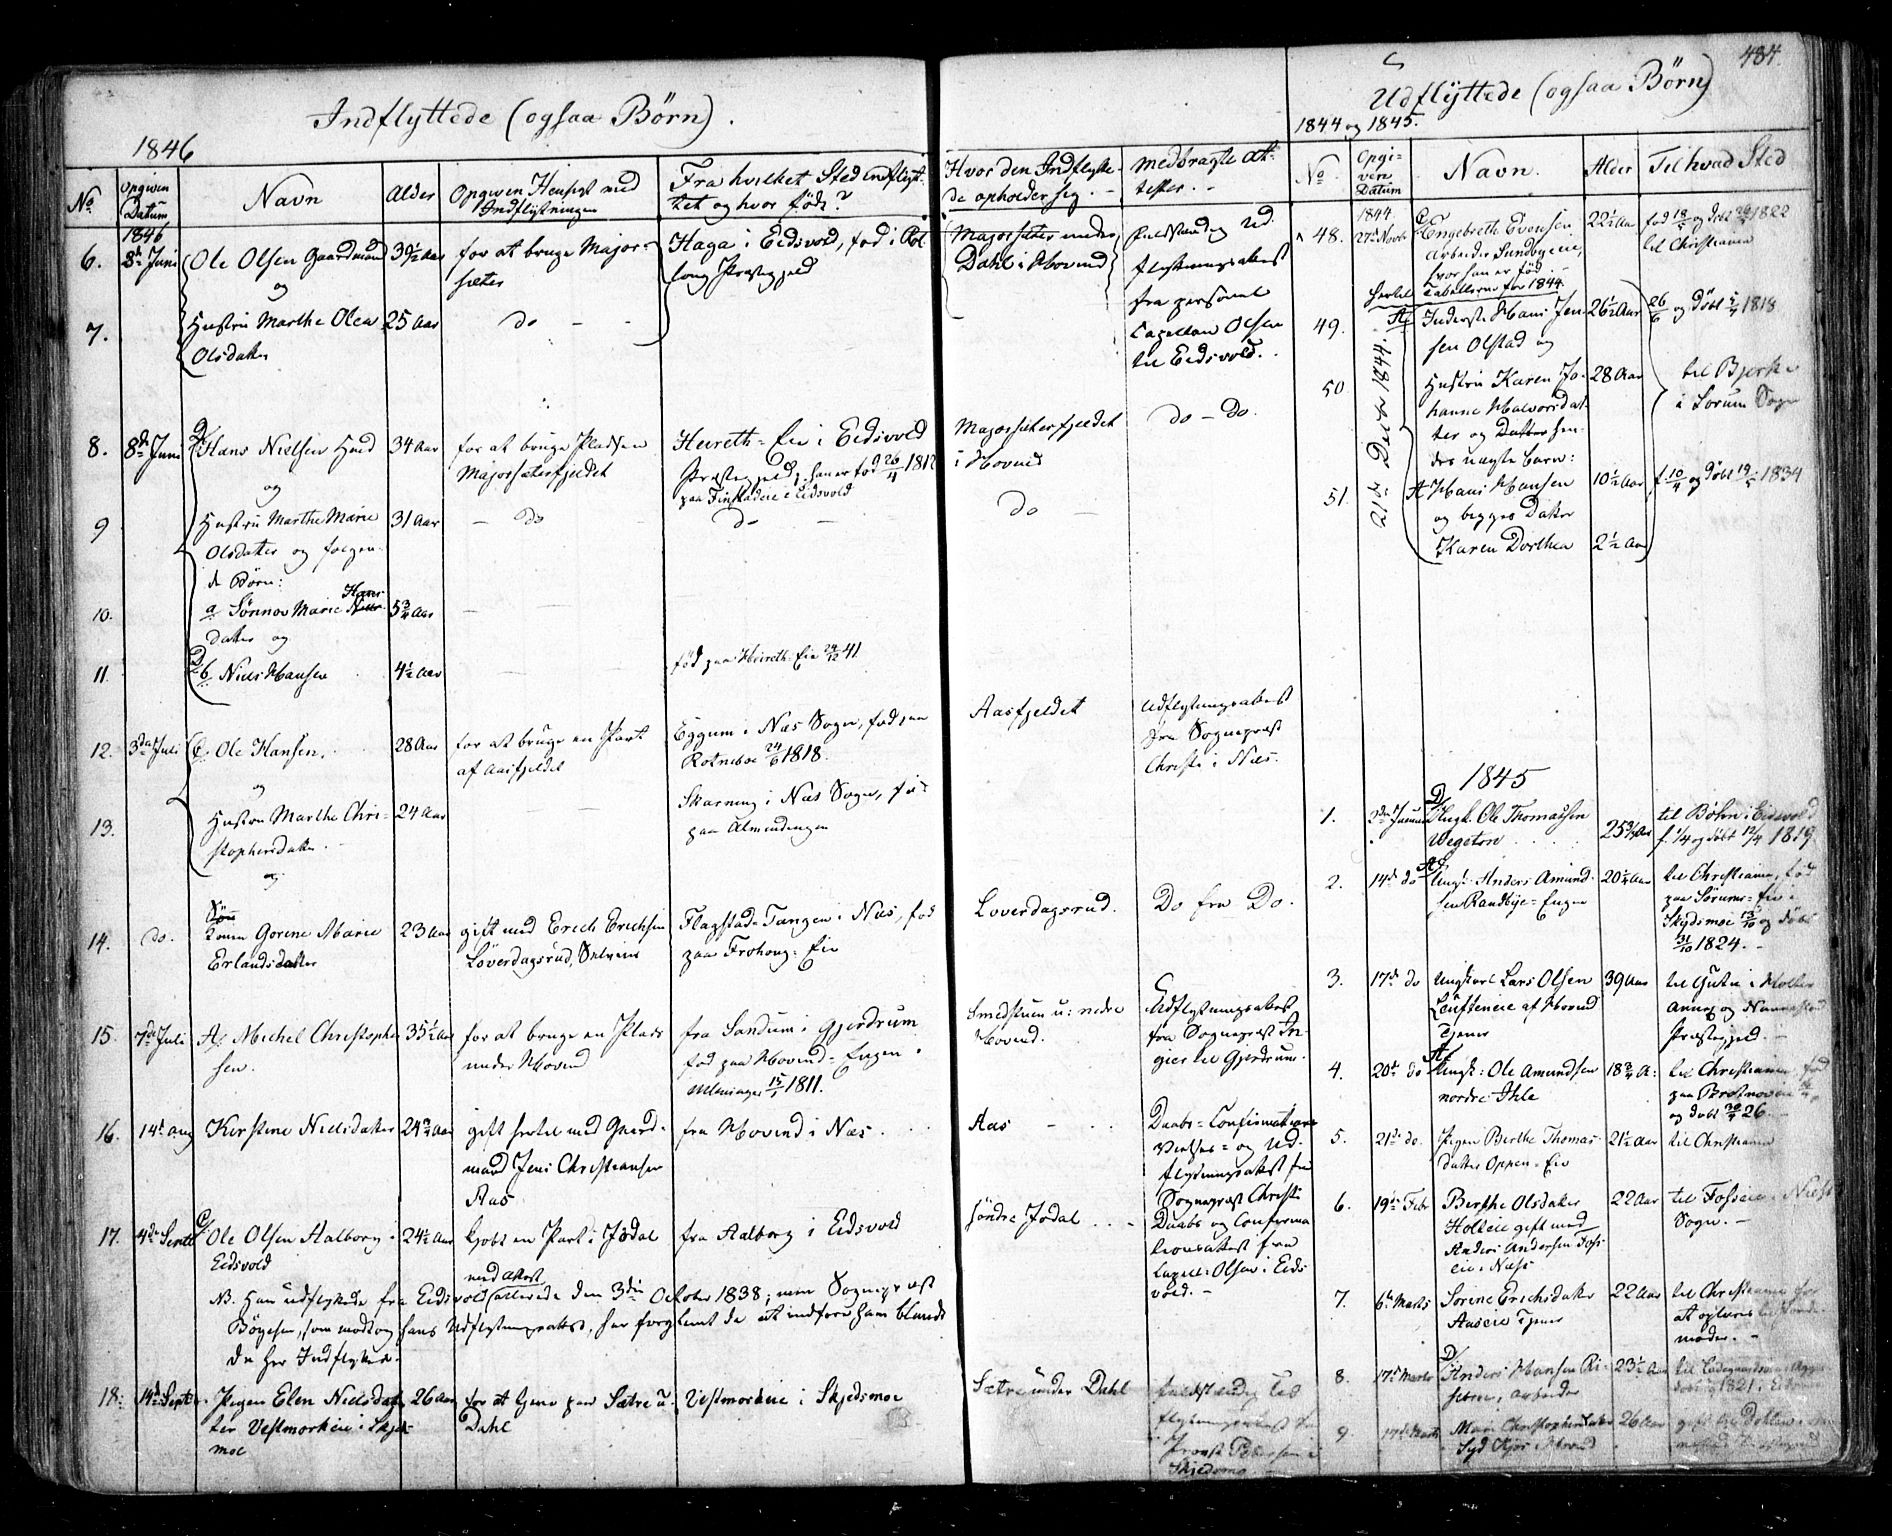 484.
Indflyttede (ogsaa Børn).
1846
No
Opgiven Datum
Navn
Alder
Opgiven Hensigt med Indflytningen
Fra hvilket Sted indflyttet og hvor født?
Hvor den Indflyttede opholder sig.
Medbragte Attester.
1846
6. 8de Juni Ole Olsen Gaardmand 39½ Aar for at bruge Majorsæter Haga i Eidsvold, fød i
Præstegjeld Majorsæter under Dahl i Hovind Fuldstændig Udflytningsattest
fra personel Capellan Olsen til Eidsvold.
og
7. Hustru Marthe Olea Olsdatter 25 Aar do
8. 8de Juni Hans Nielsen 34 Aar for at bruge Pladsen Majorsæterfjeldet Heireth-Eie i Eidsvold
Præstegjeld; han er fød 26/4 1812 paa Finstadeie i Eidsvold
Majorsæterfjeldet i Hovind do - do.
og
9 Hustru Marthe Marie Olsdatter og følgende Børn: 31 Aar do do do
10. a Sønnov Marie Hansdatter og 5¾ Aar
11. b. Niels Hansen 4½ Aar fød paa Heireth-Eie 41
12. 3die Juli Ole Hansen. 28 Aar for at bruge en Part af Aasfjeldet
Eggum i Næs Sogn, fød paa 1818.
Aasfjeldet Udflytningsattest fra Sognepræst Christi i Næs.
og
13. Hustru Marthe Christophersdatter. 24 Aar Skarning i Næs Sogn, fød paa Almindingen
og
14. do. Konen Gorine Marie Erlandsdatter 23 Aar gift med Erich Erichsen Løverdagsrud,
Flagstad-Tangen i Næs, fød paa Frohoug-Eie
Loverdagsrud. Do fra Do.
15. 7de Juli Michel Christophersen. 35½ Aar for at bruge en Plads under Hovind
fra Sandum i Gjerdrum fød paa Hovind-Engen i 1811.
Smedstuen u: nedre Hovind. Udflytningsattest fra Sognepræst til Gjerdrum.
16. 14de Aug Kirstine Nielsdatter 24¾ Aar gift hertil med Gaardmand Jens Christiansen Aas
fra Hovind i Næs. Aas Daabs- Confirmations Vielses- og Udflytningsattest fra
Sognepræst Christi
17. 4de Septb Ole Olsen Aalborg i Eidsvold 24½ Aar kjøbt en Part i Jødal fra Aalborg i Eidsvold
søndre Jødal Daabs og Confirmationsattest fra Capell: Olsen i Eidsvold.
NB. Han udflyttede fra Eidsvold med Attest allerede den 3die October 1838; men Sognepræst
Bøgesen, som modtog hans Udflytningsattest, har forglemt da at indføre ham blandt
de her Indflyttede.
18. 14de Septb. Pigen Elen Nielsdatter Vestmorkeie i Skjedsmoe 26 Aar for at tjene paa Sætre u: Dahl
Vestmorkeie i Skjedsmoe Sætre under Dahl
Provst i Skjedsmo
Udflyttede (ogsaa Børn)
1844 og 1845.
No
Opgiven Datum
Navn.
Alder
Til hvad Sted
1844
48. 27de Novb Engebreth Evensen, Arbeider Sundbyeie, hvor han er fød 22½ Aar fød 18/5 og døbt 1822
til Christiania
hertil Tabellerne for 1844.
49. Inderste Hans Jensen Olstad og 26½ Aar 26/6 og døbt 1818
21de Decbr 1844.
50 Hustru Karen Johanne Halvorsdatter og hendes uægte Barn: 28 Aar til Bjerke i Sørum Sogn
51. Hans Hansen 10½ Aar f. 10/4 og døbt 19/5 1834
og begges Datter
Karen Dorthea 2½ Aar
1845
1. 2den Januar Ungk. Ole Thomassen Wegston 25¾ Aar til Bøhn i Eidsvold f. 1/4 og døbt 12/4 1819
2. 14de do Ungk: Anders Amundsen Randbye-Engen 20¼ Aar til Christiania, fød
paa Sørum-Eie i Skjedsmoe 13/10 og døbt 31/10 1824.
3. 17de do Ungkarl Lars Olsen af Hovind Tjener 39 Aar til i Holter
Annex og Nannestad Præstegjeld.
4. 20de do Ungk: Ole Amundsen nordre Ihle 18¾ A: til Christiania, fød
paa og døbt 26
5. 21de do. Pigen Berthe Thomasdatter Oppen-Eie 21½ Aar til Christiania
6. 19de Febr Berthe Olsdatter Holleie gift med Anders Andersen Fosseie i Næs 22 Aar til Fosseie i Næss Sogn.
7. 6te Marts Sørine Erichsdatter Aaseie Tjener 22 Aar til Christiania for at oplæres til Jordemoder.
8. 17de Marts Anders Hansen Arbeider 23½ Aar til 1821.
9. 17de Marts Mari Christophersdatter Hovind 26 Aar gift til